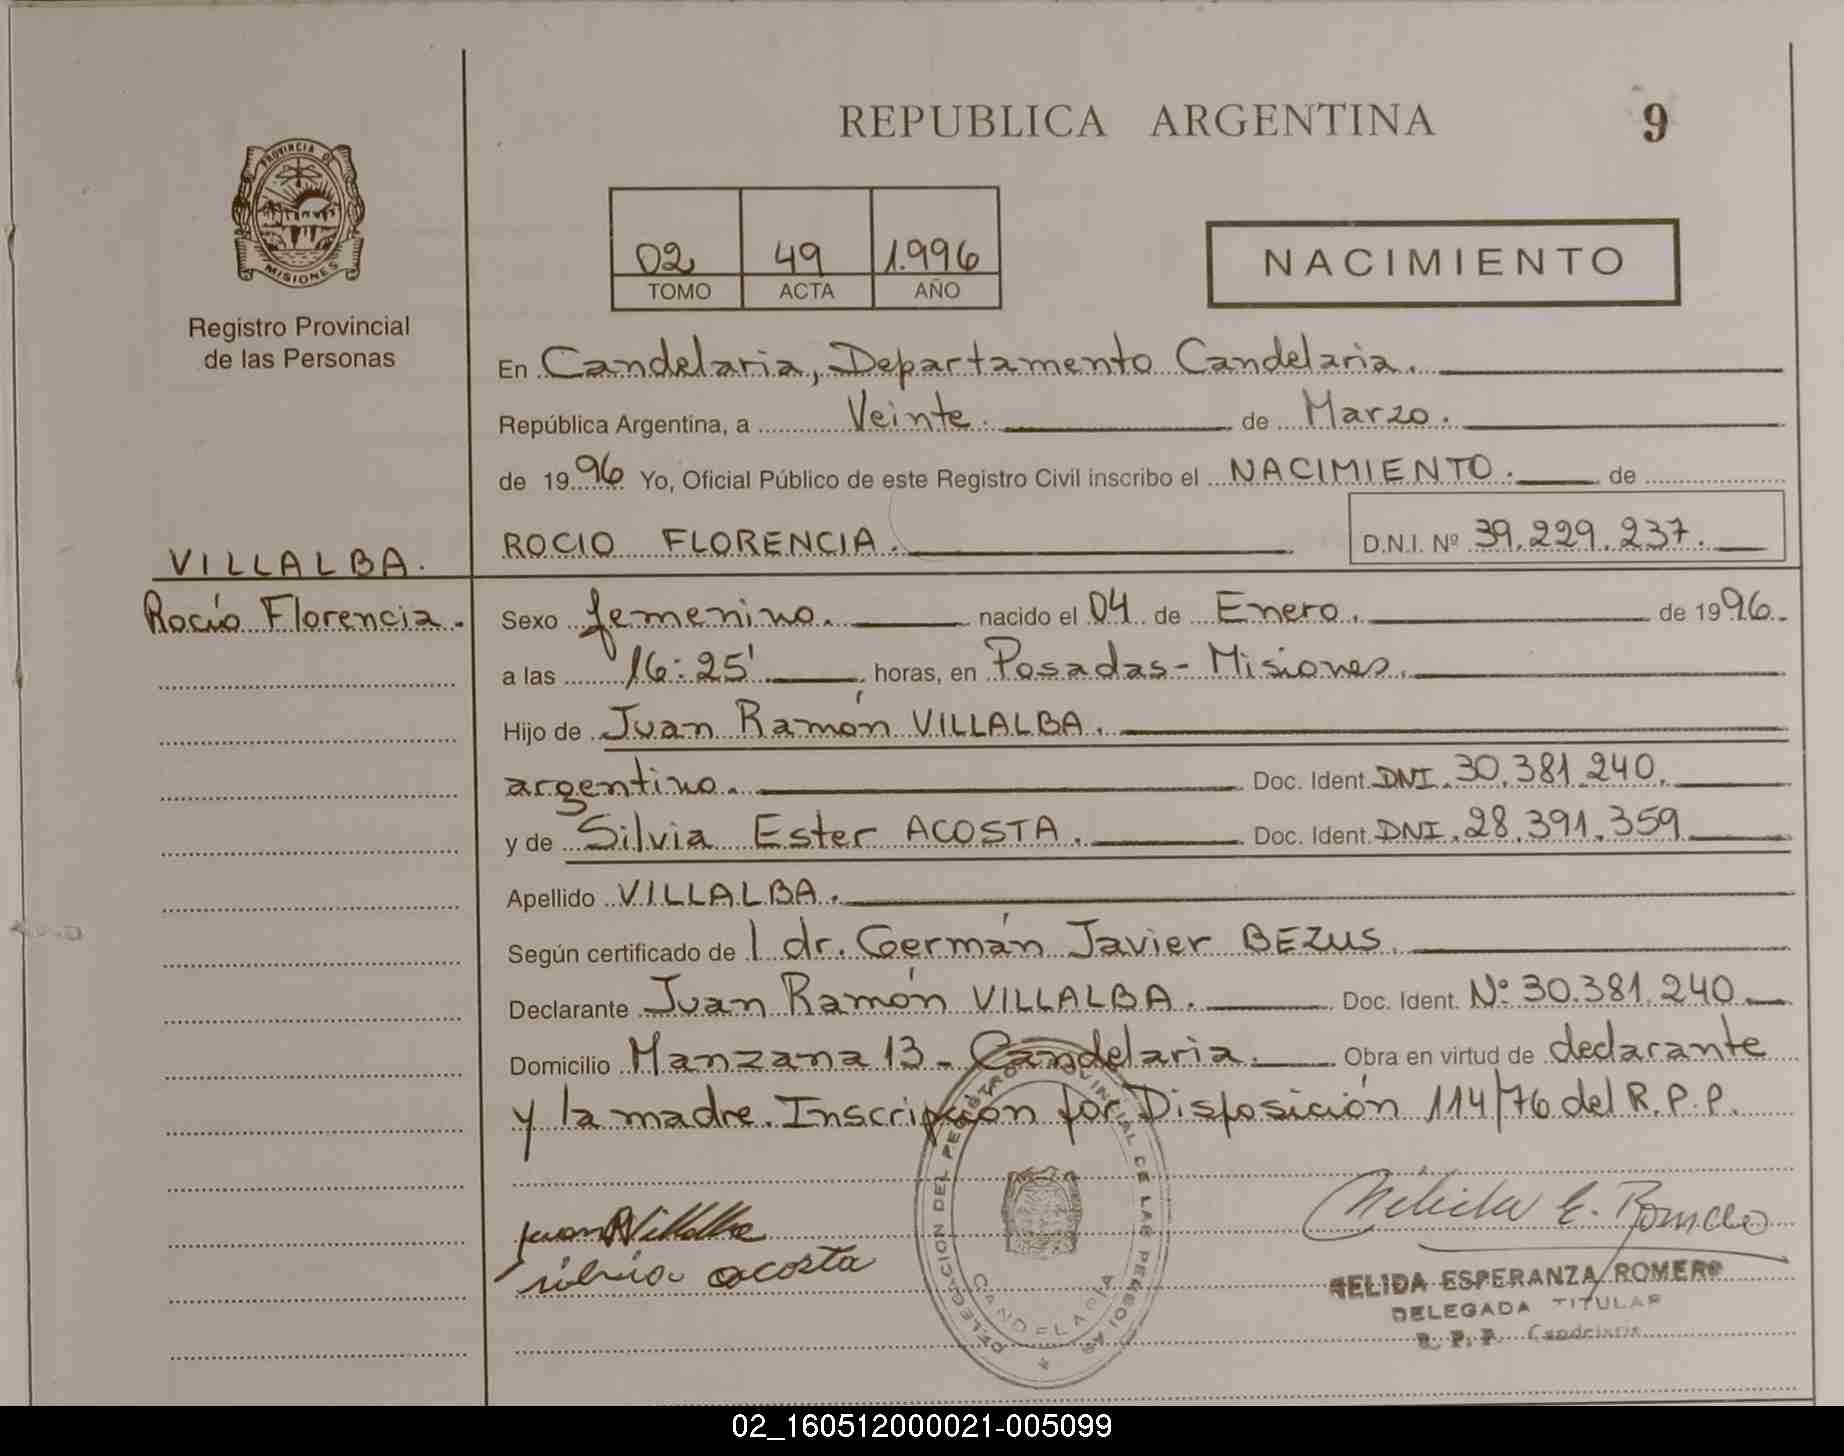 REPUBLICA ARGENTINA
9
PROVINCIA DE
MISIONES
Registro Provincial
de las Personas
02 49 1.996
TOMO ACTA AÑO
NACIMIENTO
En Candelaria, Departamento Candelaria.
República Argentina, a Veinte. de Marzo.
de 1996 Yo, Oficial Público de este Registro Civil inscribo el NACIMIENTO. de
ROCIO FLORENCIA. D.N.I. Nº 39.229.237.
VILLALBA.
Rocío Florencia.
Sexo femenino. nacido el 04 de Enero. de 1996.
a las 16:25' horas, en Posadas - Misiones.
Hijo de Juan Ramón VILLALBA.
argentino. Doc. Ident. DNI. 30.381.240.
y de Silvia Ester ACOSTA. Doc. Ident. DNI. 28.391.359
Apellido VILLALBA.
Según certificado de l dr. Germán Javier BEZUS.
Declarante Juan Ramón VILLALBA. Doc. Ident. Nº 30.381.240
Domicilio Manzana 13 - Candelaria. Obra en virtud de declarante
y la madre. Inscripción por Disposición 114/76 del R.P.P.
Juan R Villalba
silvia acosta
DELEGACION DEL REGISTRO PROVINCIAL DE LAS PERSONAS
CANDELARIA
Nelida E. Romero
NELIDA ESPERANZA ROMERO
DELEGADA TITULAR
R. P. P. Candelaria
02_160512000021-005099